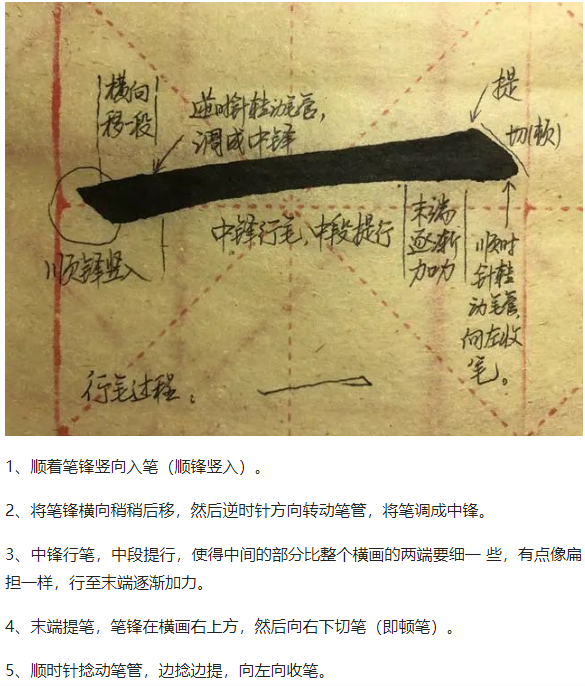 横向
移一段
逆时针转动毛管,
调成中锋
提
切(顿)
顺锋竖入
中锋行毛,中段提行
末端
逐渐
加力
顺时
针转
动毛管,
向左收
笔。
行毛过程:
1、顺着笔锋竖向入笔（顺锋竖入）。
2、将笔锋横向稍稍后移，然后逆时针方向转动笔管，将笔调成中锋。
3、中锋行笔，中段提行，使得中间的部分比整个横画的两端要细一 些，有点像扁
担一样，行至末端逐渐加力。
4、末端提笔，笔锋在横画右上方，然后向右下切笔（即顿笔）。
5、顺时针捻动笔管，边捻边提，向左向收笔。